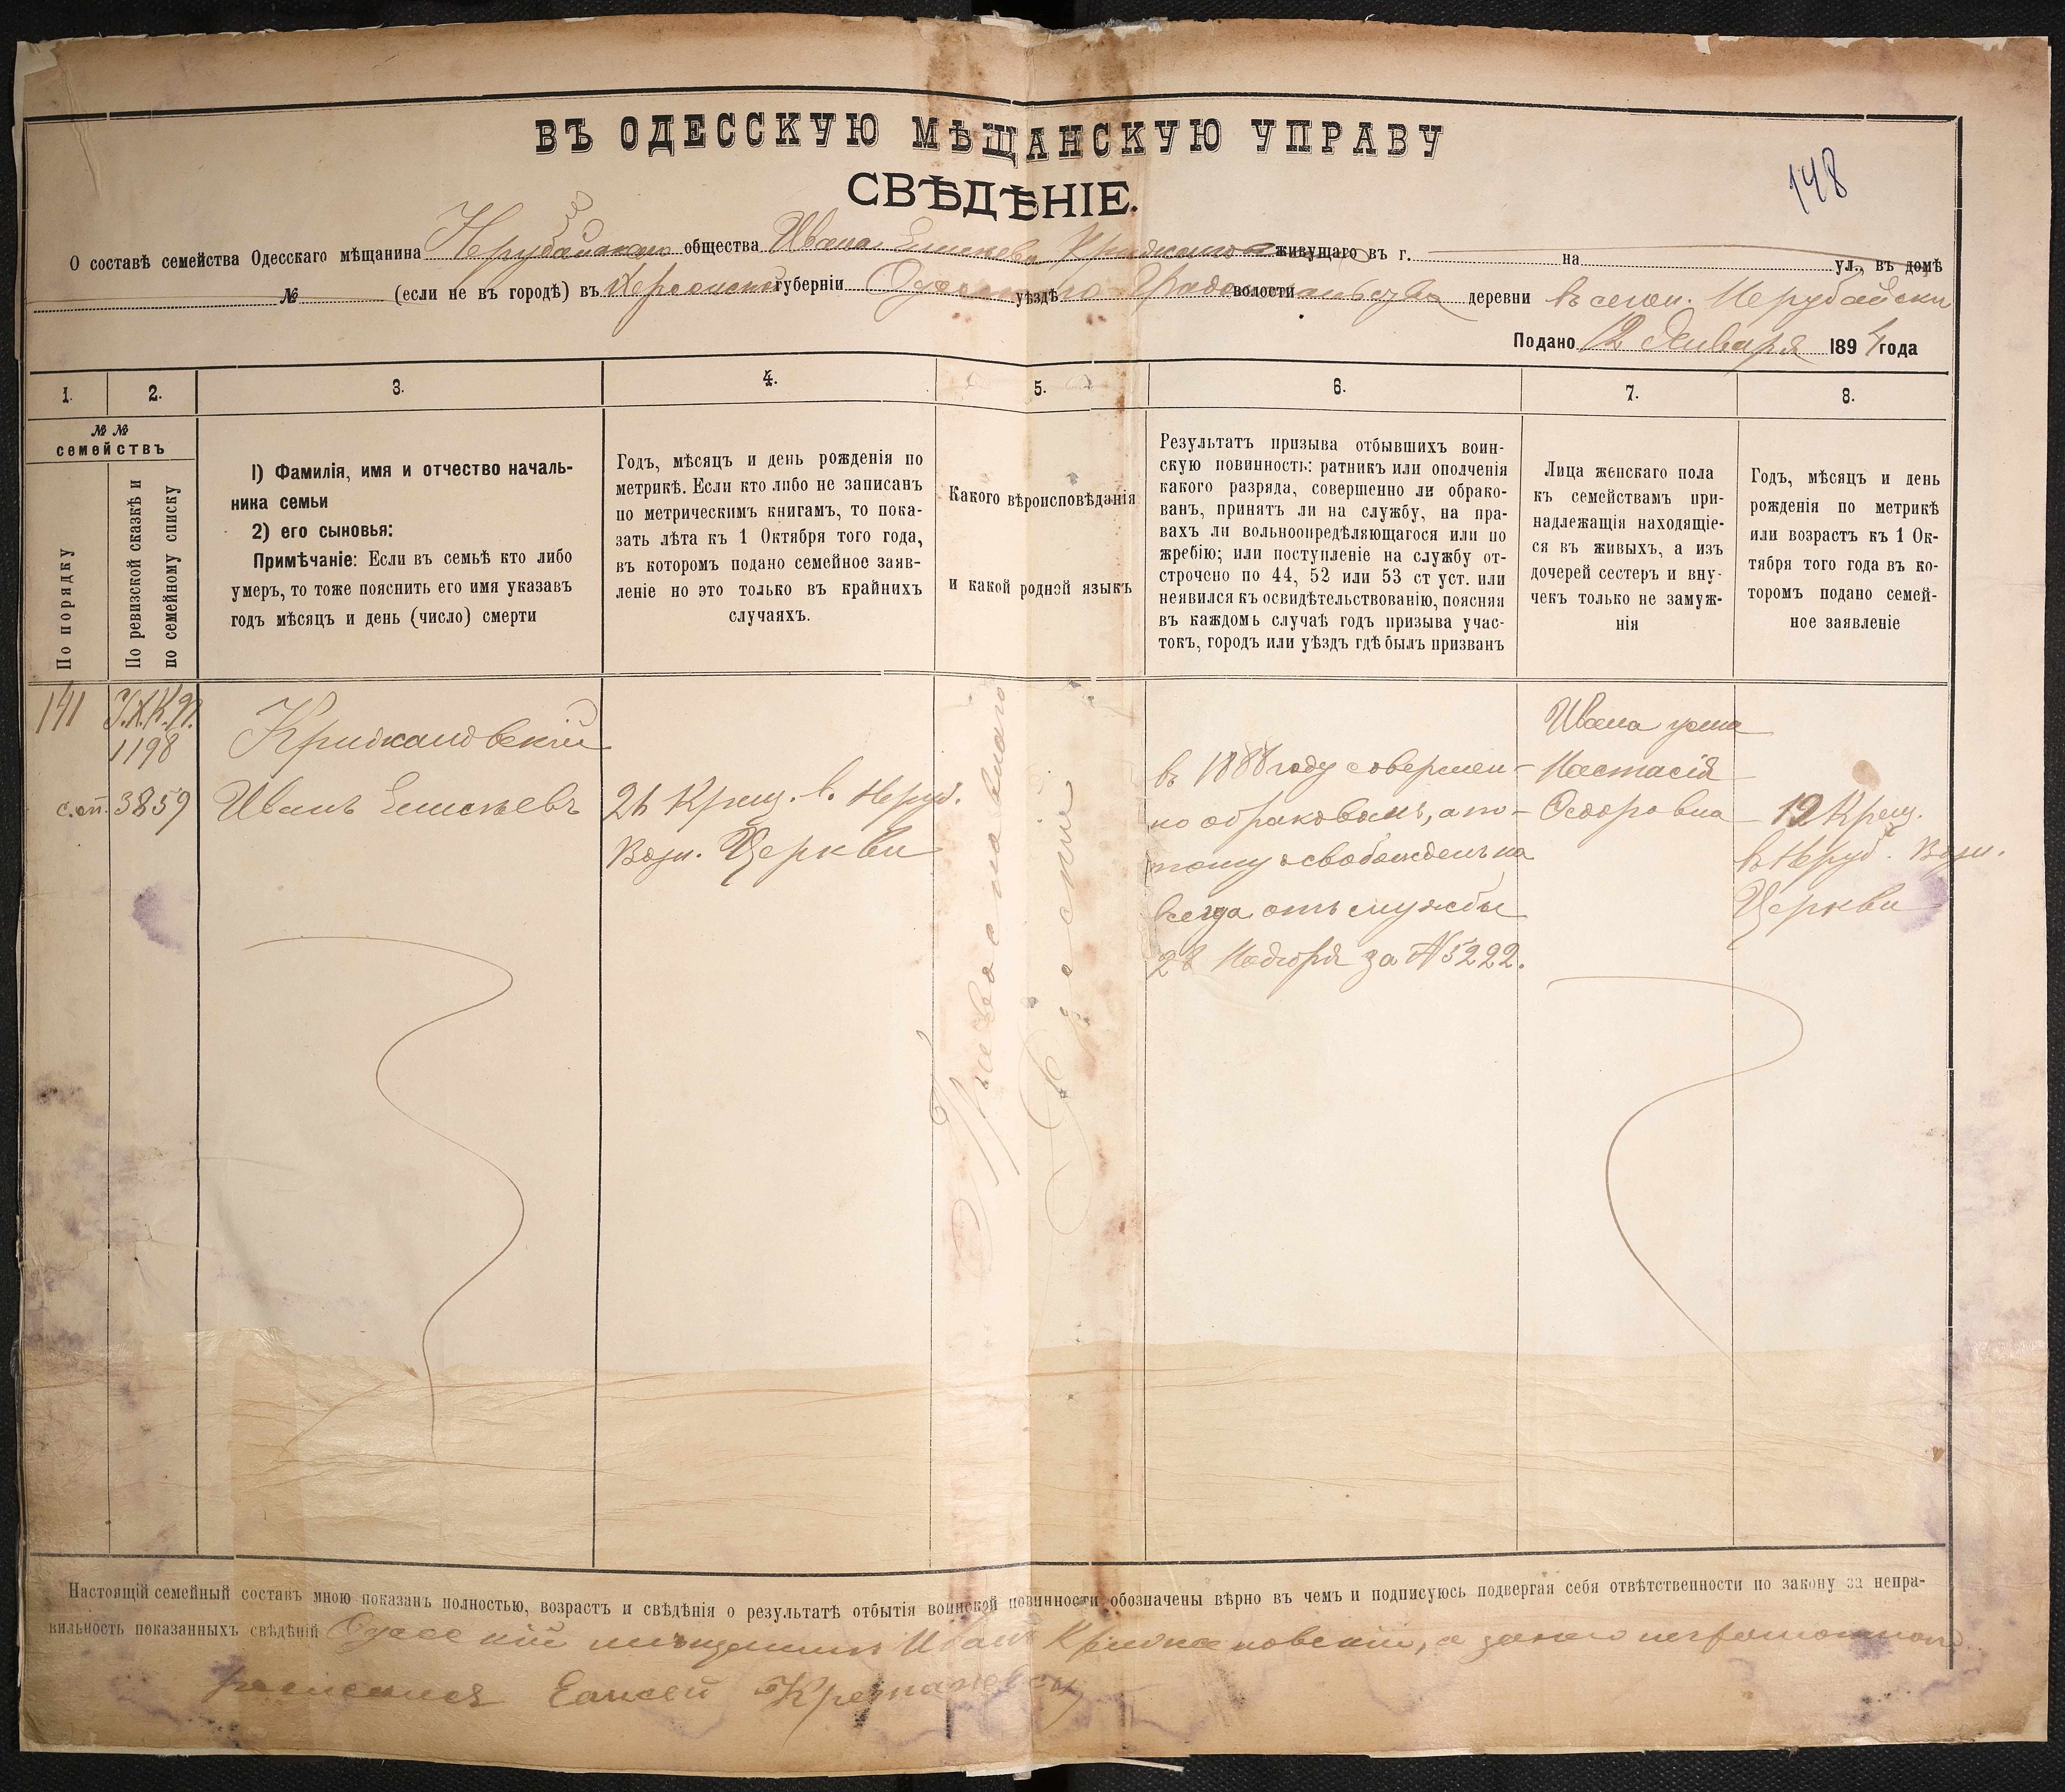 ВЪ ОДЕССКУЮ МѢЩАНСКУЮ УПРАВУ
148
СВѢДѢНІЕ.
О составѣ семейства Одесскаго мѣщанина Нерубайскаго общества Ивана Елисѣева живущаго въ г. на ул., въ домѣ
№ (если не въ городѣ) въ Херсонской губерніи Одесскаго уѣздѣ Градоначальства волости деревни въ селен. Нерубайски
Подано 12 Января 1894 года
1. 2. 3. 4. 5. 6. 7. 8.
№ №
семействъ
По порядку
По ревизской сказкѣ и
по семейному списку
I) Фамилія, имя и отчество началь-
ника семьи
2) его сыновья:
Примѣчаніе: Если въ семьѣ кто либо
умеръ, то тоже пояснить его имя указавъ
годъ мѣсяцъ и день (число) смерти
Годъ, мѣсяцъ и день рожденія по
метрикѣ. Если кто либо не записанъ
по метрическимъ книгамъ, то пока-
зать лѣта къ 1 Октября того года,
въ которомъ подано семейное заяв-
леніе но это только въ крайнихъ
случаяхъ.
Какого вѣроисповѣданія
и какой родной языкъ
Результатъ призыва отбывшихъ воин-
скую повинность: ратникъ или ополченія
какого разряда, совершенно ли обрако-
ванъ, принятъ ли на службу, на пра-
вахъ ли вольноопредѣляющагося или по
жребію; или поступленіе на службу от-
строчено по 44, 52 или 53 ст уст. или
неявился къ освидѣтельствованію, поясняя
въ каждомъ случаѣ годъ призыва учас-
токъ, городъ или уѣздъ гдѣ былъ призванъ
Лица женскаго пола
къ семействамъ при-
надлежащія находящіе-
ся въ живыхъ, а изъ
дочерей сестеръ и вну-
чекъ только не замуж-
нія
Годъ, мѣсяцъ и день
рожденія по метрикѣ
или возрастъ къ 1 Ок-
тября того года въ ко-
торомъ подано семей-
ное заявленіе
141
У.Х.К.П.
1198
с.сп. 3859
Крижановскій
Иванъ Елисѣевъ
26 Крещ. в. Неруб.
Возн. Церкви
Православнаго
Русскій
въ 1888 году совершен-
но обракованъ, а по-
тому освобожденъ на
всегда отъ службы
28 Ноября за № 5222.
Ивана жена
Настасія
Ѳедоровна
19 Крещ.
в Неруб. Возн.
Церкви
Настоящій семейный составъ мною показанъ полностью, возрастъ и свѣдѣнія о результатѣ отбытія воинской повинности обозначены вѣрно въ чемъ и подписуюсь подвергая себя отвѣтственности по закону за непра-
вильность показанныхъ свѣдѣній Одесскій мѣщанинъ Иванъ Крижановскій, а за него неграмотнаго
росписался Елисей